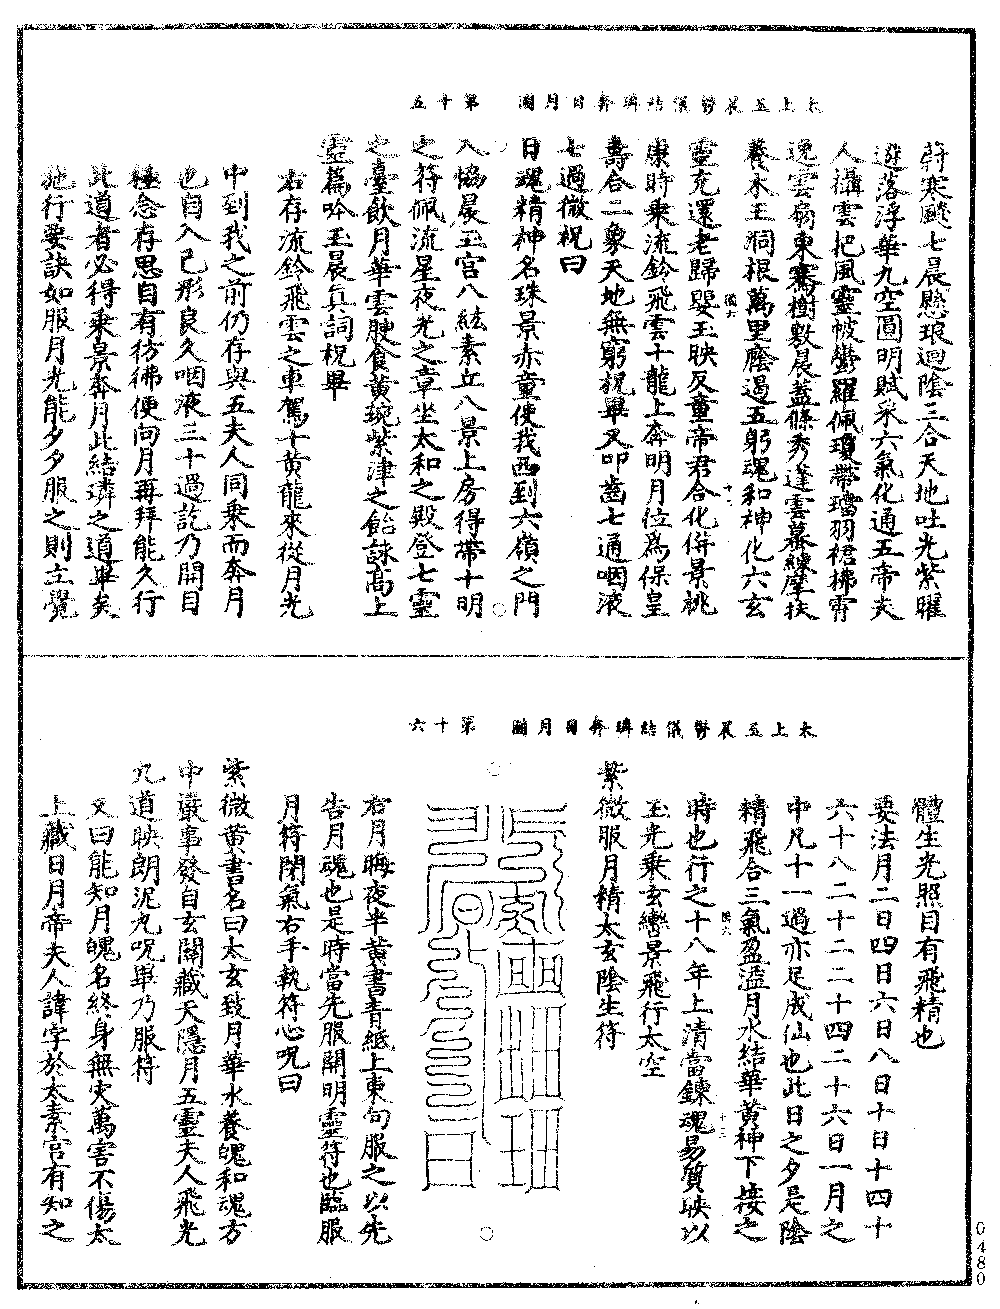 太上玉晨欝儀結璘奔日月圖　第十五
蔚寒飈七晨懸琅迴陰三合天地吐光紫曜
遊落浮華九空圓明賦采六氣化通五帝夫
人攝雲把風靈帔欝羅佩瓊帶璫羽裙拂霄
逸雲扇東騫樹敷晨蓋條秀逢雲幕練摩扶
養木王洞根萬里廕過五躬魂和神化六玄
靈充還老歸嬰玉映反童帝君合化併景挑
康時乘流鈴飛雲十龍上奔明月位爲保皇
壽合二象天地無窮祝畢又叩齒七通咽液
七過微祝曰
日魂精神名珠景赤童使我西到六嶺之門
入協晨玉宮八絃素丘八景上房得帶十明
之符佩流星夜光之章坐太和之殿登七靈
之臺飲月華雲腴食黄琬紫津之飴詠高上
靈篇吟玉晨真詞祝畢
右存流鈴飛雲之車駕十黄龍來從月光
中到我之前仍存與五夫人同乘而奔月
也自入己形良久咽液三十過訖乃開目
極念存思自有彷彿便向月再拜能久行
此道者必得乘景奔月此結璘之道畢矣
施行要訣如服月光能夕夕服之則立覺
太上玉晨欝儀結璘奔日月圖　第十六
體生光照目有飛精也
要法月二日四日六日八日十日十四十
六十八二十二二十四二十六日一月之
中凡十一過亦足成仙也此日之夕是陰
精飛合三氣盈溢月水結華黄神下接之
時也行之十八年上清當鍊魂易質映以
玉光乘玄轡景飛行太空
紫微服月精太玄陰生符
右月晦夜半黄書青紙上東向服之以先
告月魂也是時當先服開明靈符也臨服
月符閉氣右手執符心呪曰
紫微黄書名曰太玄致月華水養魄和魂方
中嚴事發自玄關藏天隱月五靈夫人飛光
九道映朗泥丸呪畢乃服符
又曰能知月魄名終身無灾萬害不傷太
上藏日月帝夫人諱字於太素宮有知之
0480